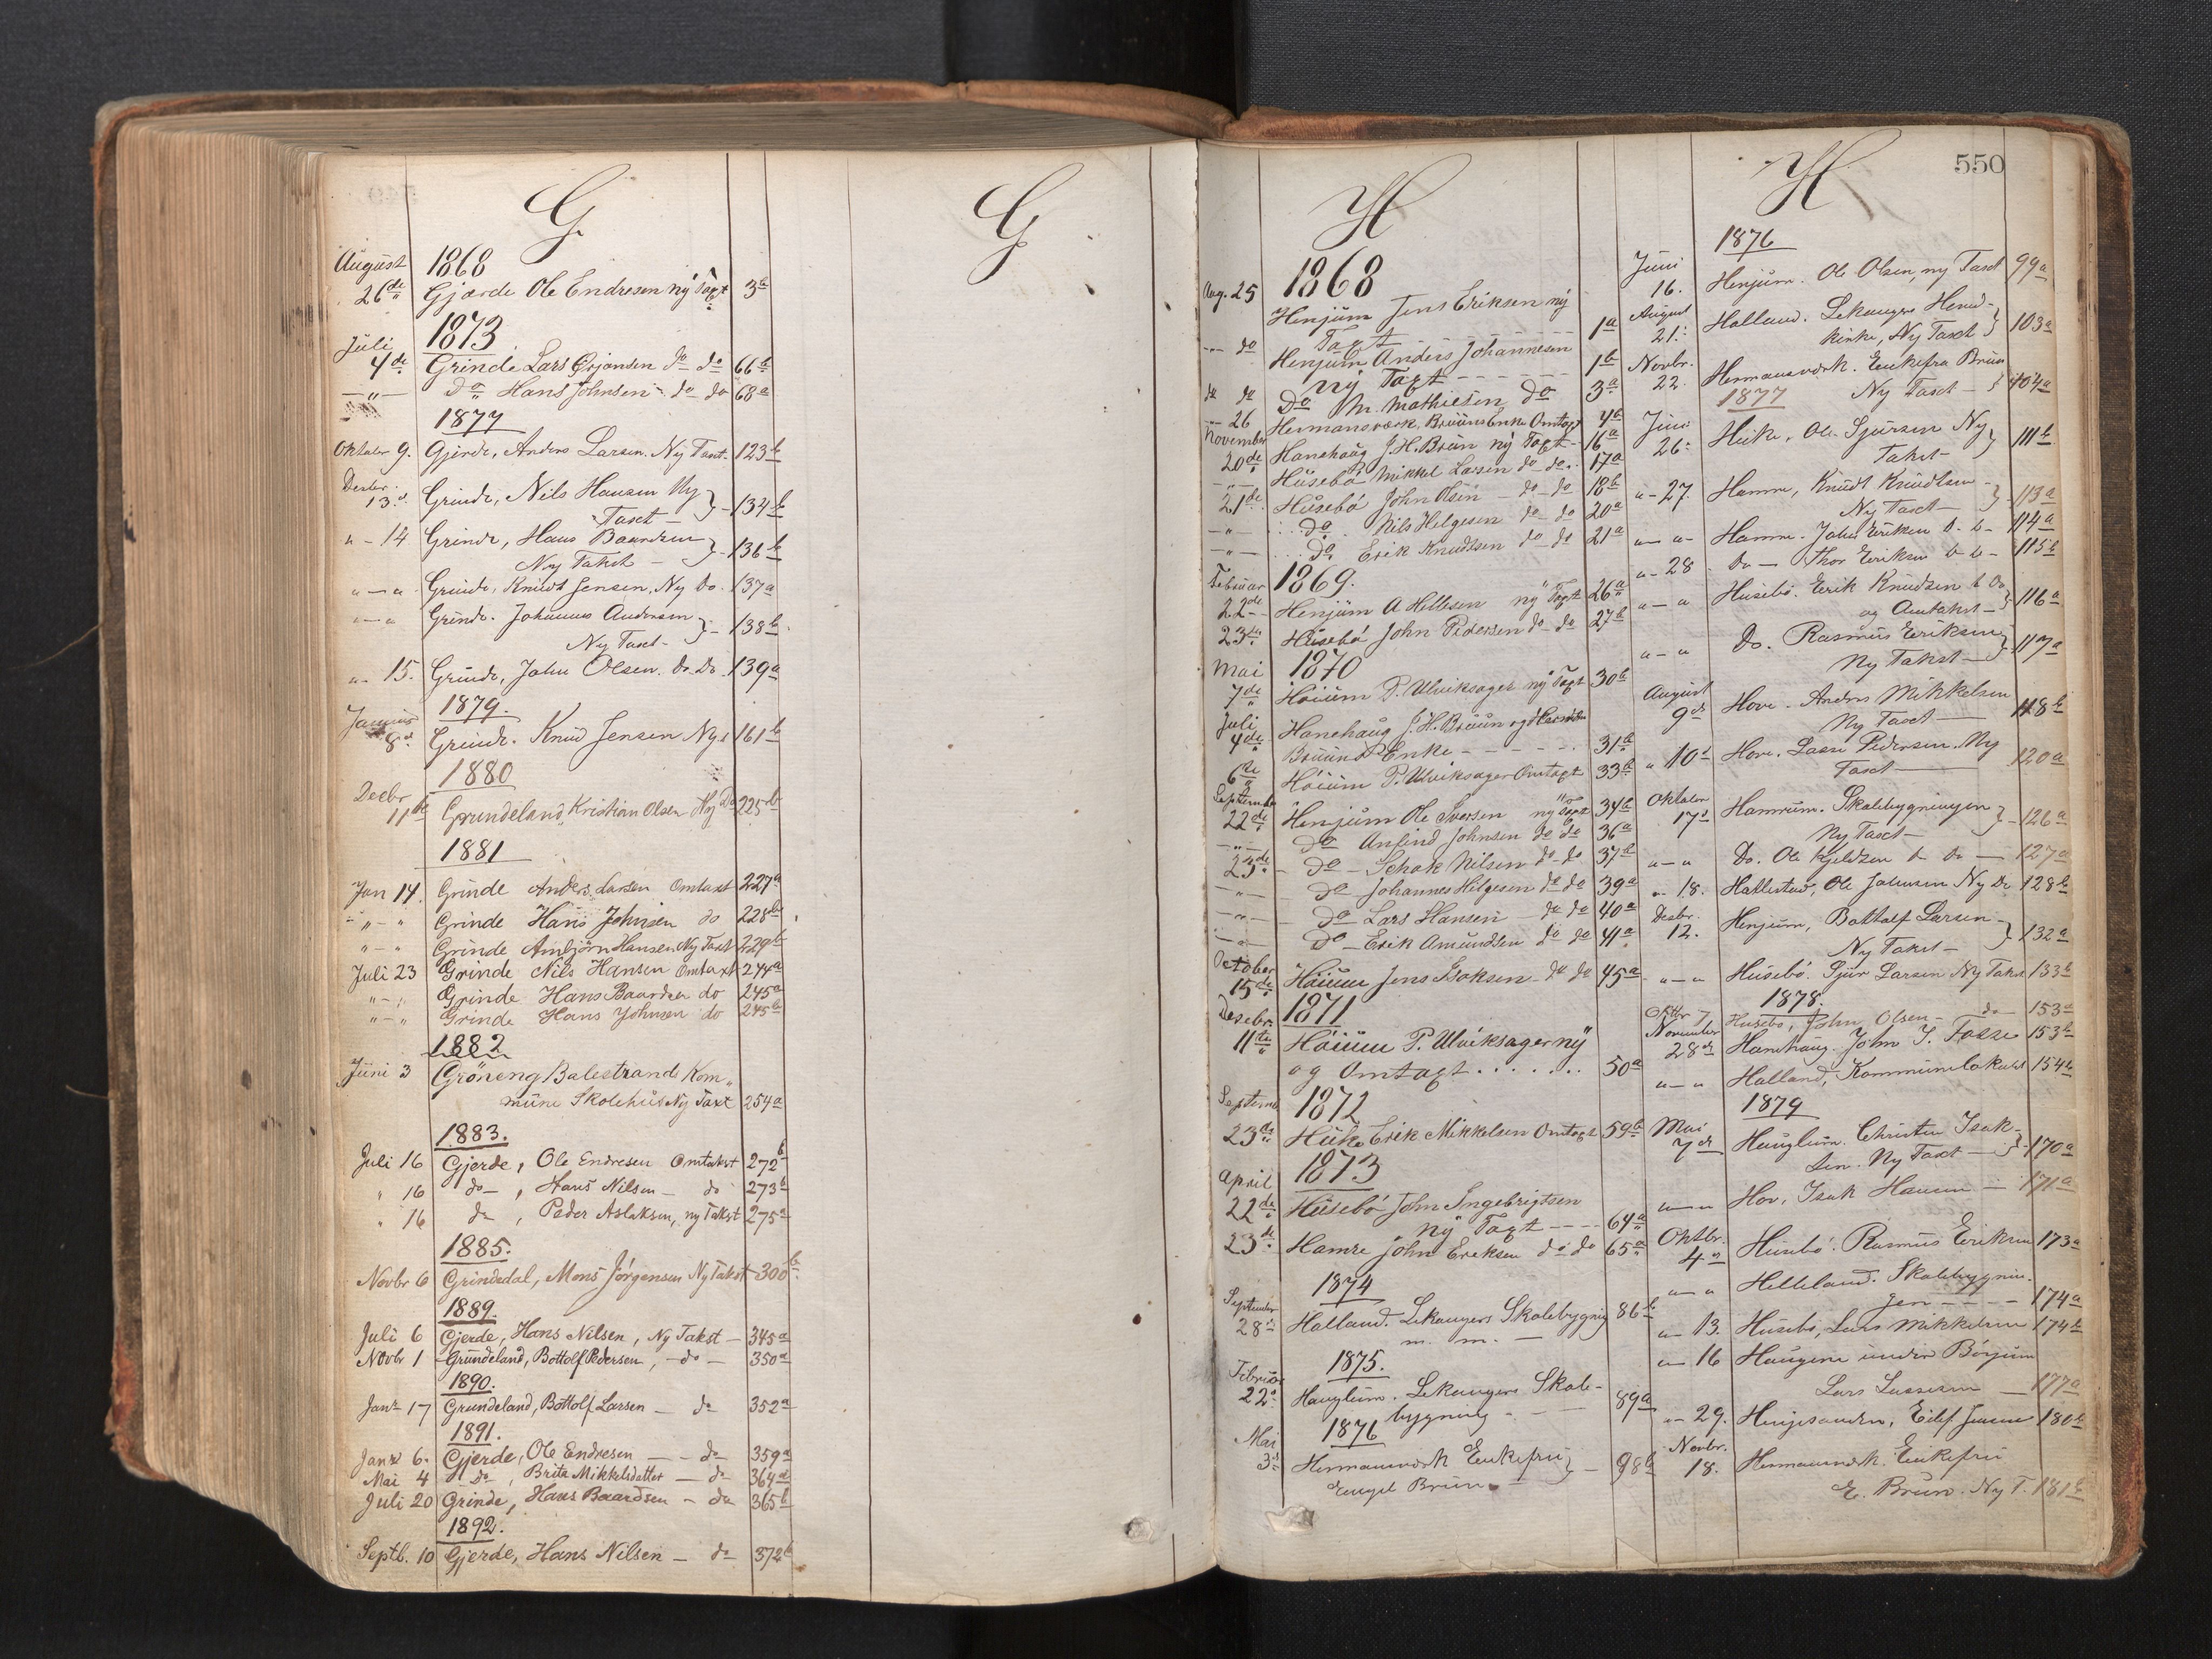 G.
August 1868
26de Gjærde Ole Endresen ny Taxt 3a
Juli 1873
4de Grinde Lars Ørjansen do do 66b
—"— do Hans Johnsen do do 68a
1877
Oktober 9. Gjerde, Anders Larsen. Ny Taxt. 123b
Decbr.
13d. Grinde, Nils Hansen Ny
Taxt — } - 134b
" - 14 Grinde, Hans Baardsen
Ny Takst — } - 136b
" — " Grinde, Knudt Jensen, Ny Do. 137a
" — " Grinde. Johannes Andersen
Ny Taxt - } - 138b
" - 15. Grinde, John Olsen. Do. Do. 139a
1879.
Januar
8d. Grinde. Knud Jensen Ny. 161b
1880
Decbr
11te Grundeland, Kristian Olsen Ny Do 225b
1881
Jan 14. Grinde Anders Larsen Omtaxt 227a
" - " Grinde Hans Johnsen do 228b
" - " Grinde Ambjörn Hansen Ny Taxt 229b
Juli 23 Grinde Nils Hansen Omtaxt 244a
" - " Grinde Hans Baardsen do 245a
" - " Grinde Hans Johnsen do 245b
1882
Juni 3 Gröneng Balestrands Kom„
müne Skolehus Ny Taxt 254a
1883.
Juli 16 Gjerde, Ole Endresen Omtakst 272b
" 16 do —, Hans Nilsen — do 273b
" 16 do, Peder Aslaksen, ny Takst 275a
1885.
Novbr 6 Grindedal, Mons Jørgensen Ny Takst 300b
1889.
Juli 6 Gjerde, Hans Nilsen, Ny Takst — 345a
Novbr 1 Grundeland, Bottolf Pedersen, — do — 350a
1890.
Janr 17 Grundeland, Bottolf Larsen — do 352a
1891.
Janr 6. Gjerde, Ole Endresen — - do 359a
Mai 4 Do, Brita Mikkelsdatter — do 364a
Juli 20 Grinde, Hans Baardsen - do 365b
1892.
Septb. 10 Gjerde, Hans Nilsen — do 372b
G
H
Aug. 25 1868
Henjum Jens Eriksen ny
Taxt - - - - - - 1a
— do Henjum Anders Johannesen
ny Taxt - - - - - 1b
do do Do M. Mathiesen do 3a
— 26 Hermansværk, Bruuns Enke Omtaxt 4a
November
20de Hanehaug J. H. Brun ny Taxt - 16a
—"— Husebö Mikkel Larsen do do. 17a
21de. Husebö John Olsen — do - do 18b
—"— do. Nils Helgesen do - do 20a
—"— do. Erik Knudtsen do - do 21a
Februar 1869.
22de Henjum A Hellesen ny Taxt 26a
23de. Husebö John Pedersen do - do 27b
Mai 1870
7de Höium P. Ulviksager ny Taxt 30b
Juli
4de. Hanehaug J. H. Bruun og
Bruuns Enke - - - - - 31b
6te Höium P. Ulviksager Omtaxt 33b
September
22de. Henjum Ole Iversen ny Taxt 34b
—"— do Anfind Johnsen do do 36a
23de. do - Schak Nilsen do - do 37b
—"— do Johannes Helgesen do do 39a
—"— do Lars Hansen — do do 40a
—"— do - Erik Amundsen do do 41a
October
15de. Höium Jens Isaksen - do do 45a
Desebr. 1871
11te Höium P. Ulviksager ny
og Omtaxt . . . . . . . 50a
Septemb 1872
23de Huke Erik Mikkelsen Omtaxt 59b
April 1873
22de. Husebö John Ingebrigtsen
ny Taxt - - - 64a
23de. Hamre John Ericksen do do 65a
1874
September
28de Halland. Lekangers Skolebygnig 86b
m. m. —
1875.
Februar
22. Hauglum. Lekangers Skole-
bygning - — 89a
Mai 1876
3d. Hermansverk Enkefru
Engel Brun. — } - 98b
H 550
1876
Juni
16. Henjum. Ole Olsen, ny Taxt 99a
August
21. Halland. Lekangers Hered-
kirke, Ny Taxt } 103a
Novbr.
22. Hermansverk. Enkefru Brun
Ny Taxt - } 104a
1877
Juni
26. Huke, Ole Sjursen Ny
Takst - } 111b
" - 27. Hamre, Knudt Knudtsen -
Ny Taxt — } - 113a
" — " - Hamre. John Eriksen D. D - 114a
" - 28 Do — Thor Eriksen D D - 115b
" — " Husebö. Erik Knudsen D Do
og Omtakst - } 116a
" — " Do. Rasmus Eriksen
Ny Takst — } 117a
August
9de Hove. Anders Mikkelsen
Ny Taxt — 118b
" 10d Hove. Lasse Pedersen. Ny
Taxt — 120a
Oktober
17d Hamrum. Skolebygningen
Ny Taxt — } - 126a
" — " Do. Ole Kjeldsen D Do — 127a
" - 18. Hallestad, Ole Johnsen Ny Do 128b
Decbr.
12. Henjum, Bottolf Larsen -
Ny Takst - } 132a
" — " Husebö. Sjur Larsen Ny Takst 133b
1878.
Oktbr 7 Husebö, John Olsen - do — 153a
November
28de Hanehaug. John J. Fosse 153b
" — " Halland, Kommunelokalet 154b
1879
Mai
7de Hauglum. Christen Isak-
sen. Ny Taxt — } - 170a
" — " Hov, Isak Hansen — 171a
Oktbr.
4de Husebö. Rasmus Eriksen 173a
" — " Helleland. Skolebygnin-
gen - - - - 174a
" - 13. Husebö, Lars Mikkelsen 174b
" — 16 Haugene under Börjum
Lars Lassesen — 177a
" - 29. Henjesanden, Eilef Jensen 180b
Novbr.
18. Hermansverk. Enkefru
E. Brun. Ny T. 181b